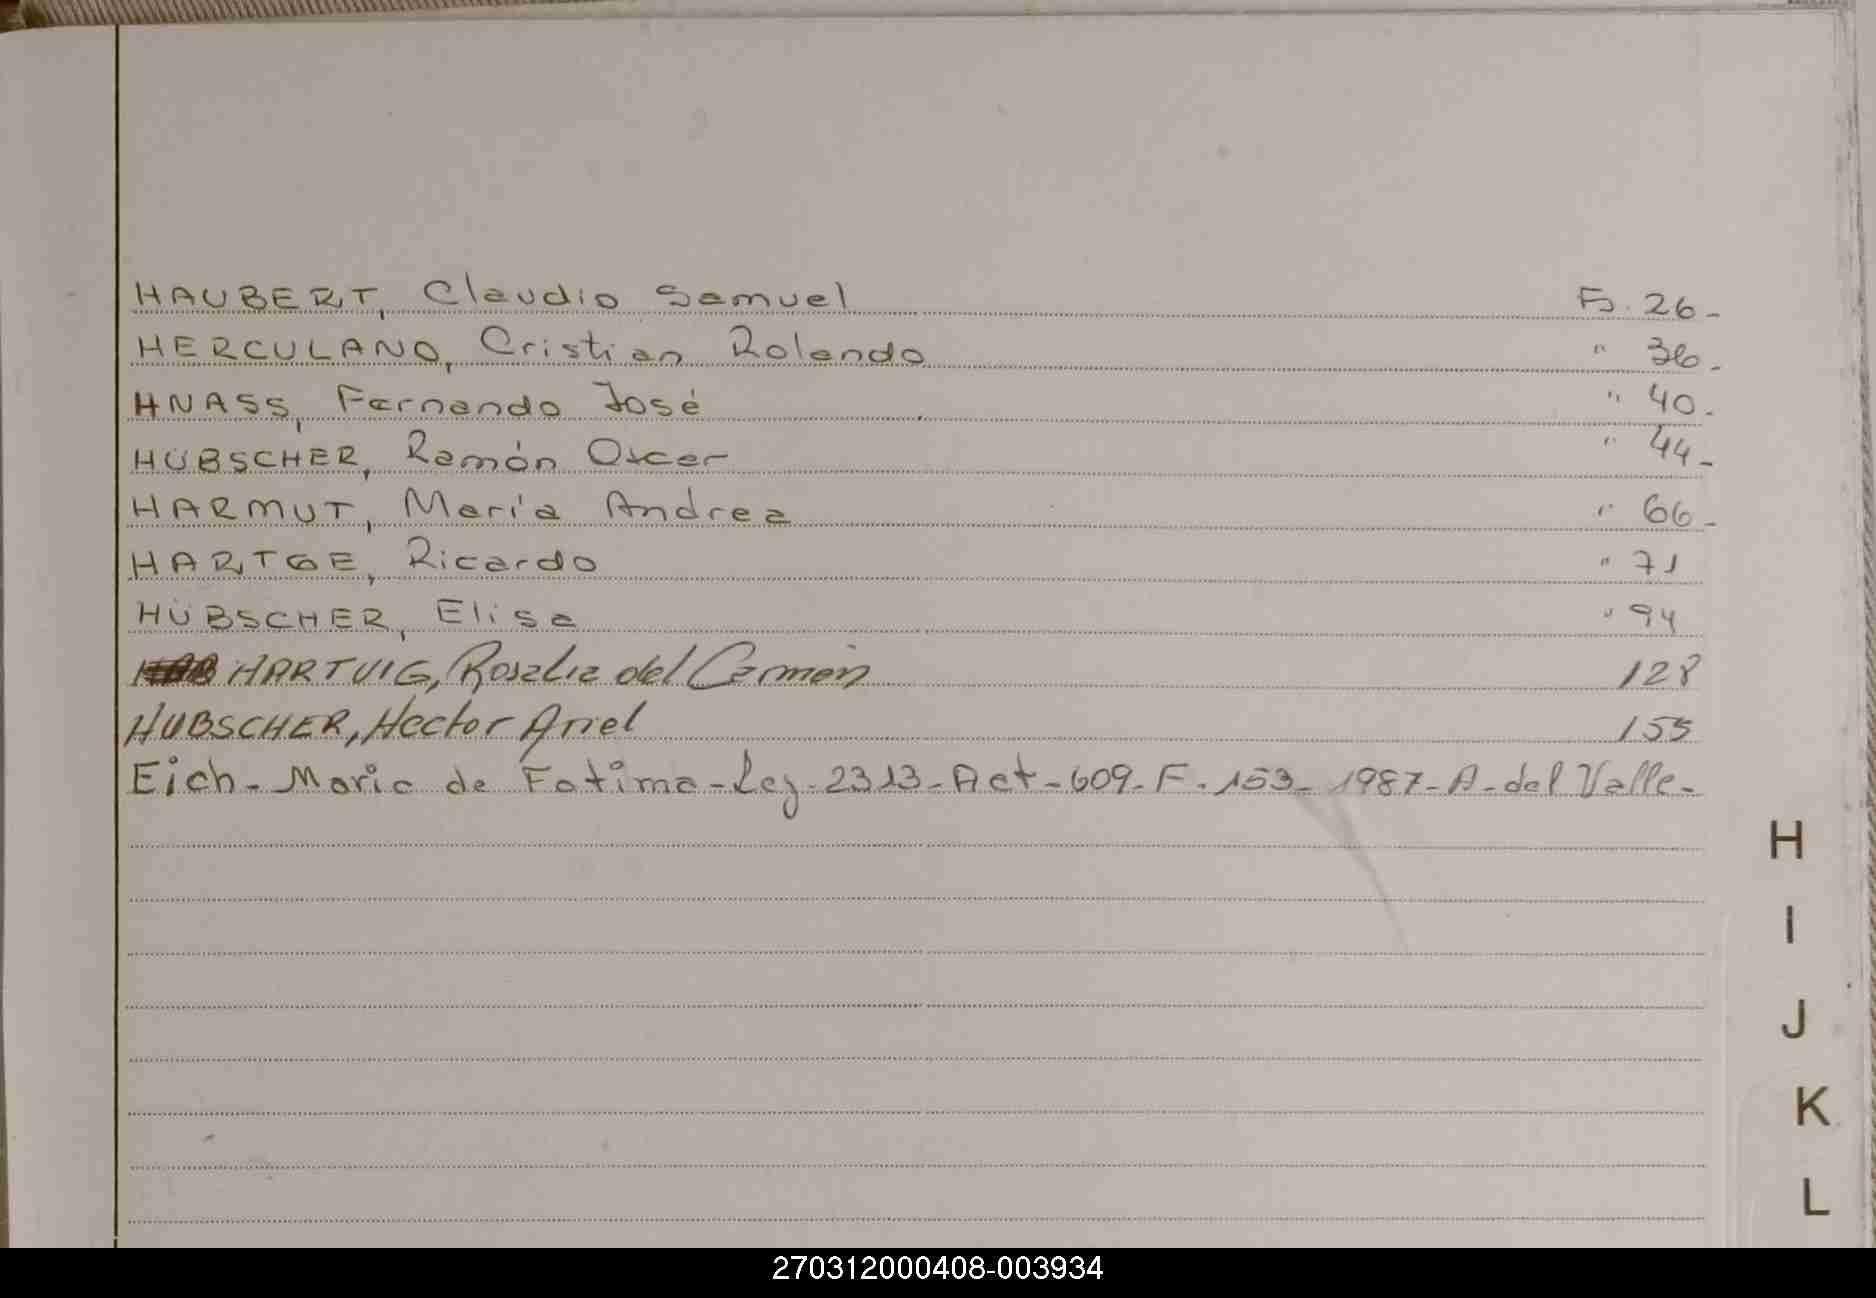 HAUBERT, Claudio Samuel Fs. 26-
HERCULANO, Cristian Rolando " 36-
HNASS, Fernando José " 40-
HÜBSCHER, Ramón Oscar " 44-
HARMUT, María Andrea " 66-
HARTGE, Ricardo " 71
HÜBSCHER, Elisa " 94
HARTVIG, Rosalia del Carmen 128
HUBSCHER, Hector Ariel 155
Eich- Maria de Fatima- Ley- 2313- Act- 609- F- 153- 1987- A- del Valle-
H
I
J
K
L
270312000408-003934